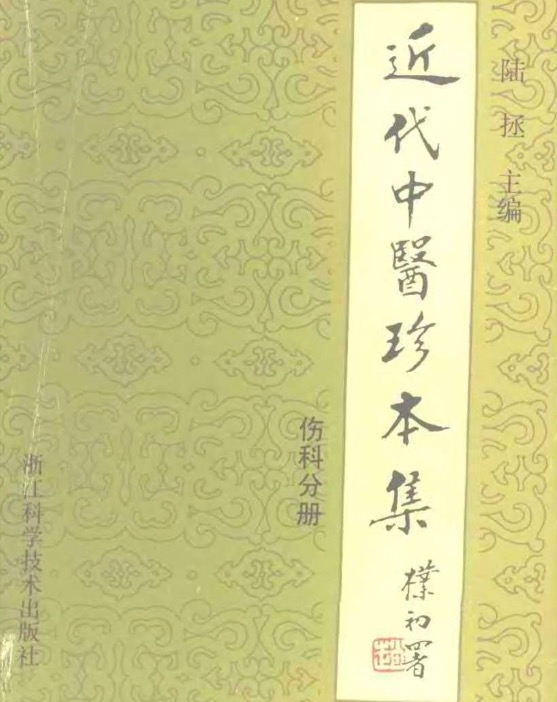 陆拯 主编
近代中醫珍本集
樸初署
伤科分册
浙江科学技术出版社